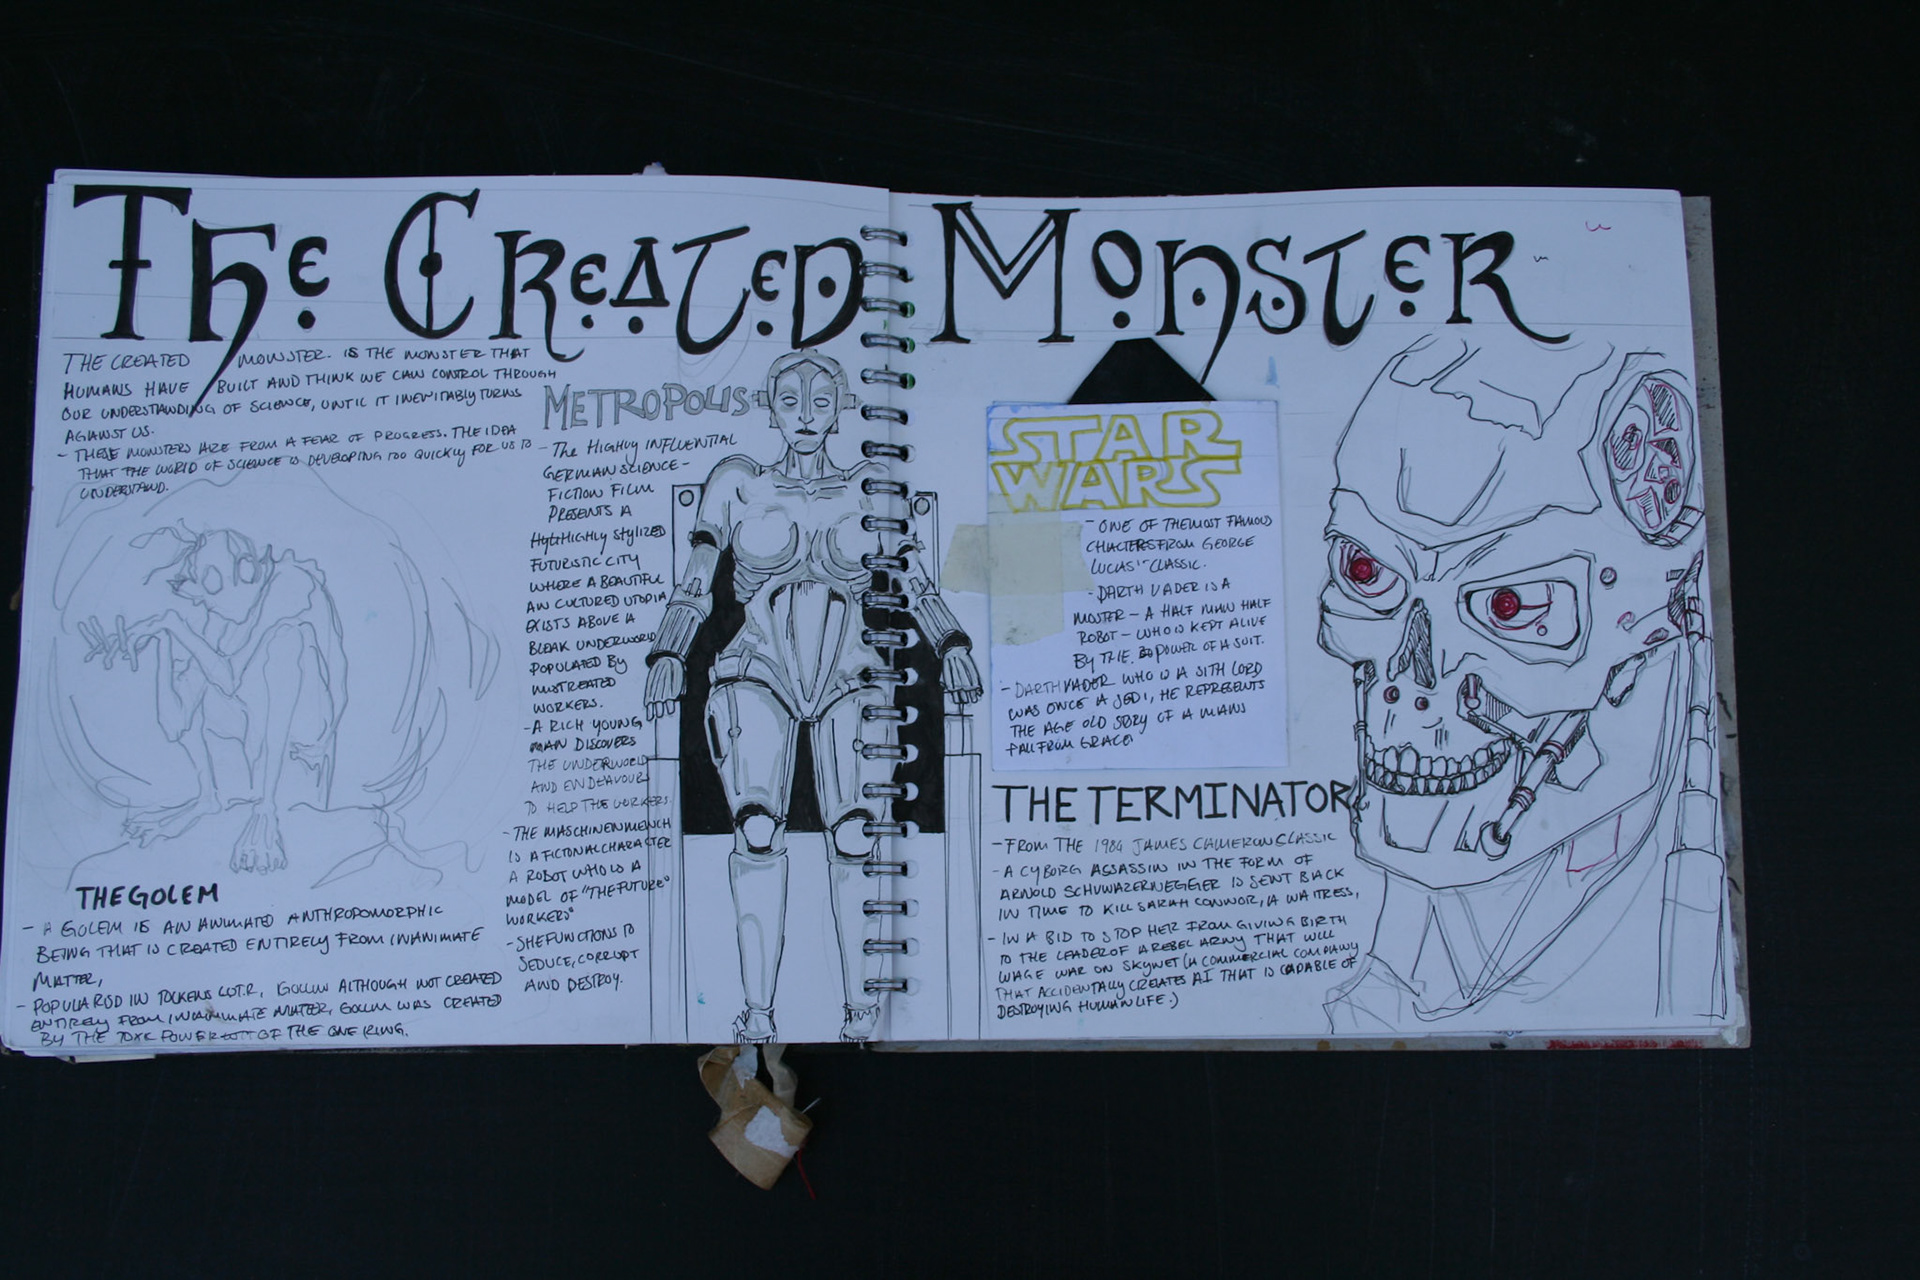 THE CREATED MONSTER
THE CREATED MONSTER. IS THE MONSTER THAT
HUMANS HAVE BUILT AND THINK WE CAN CONTROL THROUGH
OUR UNDERSTANDING OF SCIENCE, UNTIL IT INEVITABLY TURNS
AGAINST US.
- THESE MONSTERS ARE FROM A FEAR OF PROGRESS. THE IDEA
THAT THE WORLD OF SCIENCE IS DEVELOPING TOO QUICKLY FOR US TO
UNDERSTAND.
THE GOLEM
- A GOLEM IS AN ANIMATED ANTHROPOMORPHIC
BEING THAT IS CREATED ENTIRELY FROM INANIMATE
MATTER,
- POPULARISD IN TOLKENS L.O.T.R, GOLLUM ALTHOUGH NOT CREATED
ENTIRELY FROM INANIMATE MATTER, GOLLUM WAS CREATED
BY THE POWER OF THE ONE RING.
METROPOLIS
- THE HIGHLY INFLUENTIAL
GERMAN SCIENCE-
FICTION FILM
PRESENTS A
HIGHLY STYLIZED
FUTURISTIC CITY
WHERE A BEAUTIFUL
AN CULTURED UTOPIA
EXISTS ABOVE A
BLEAK UNDERWORLD
POPULATED BY
MISTREATED
WORKERS.
- A RICH YOUNG
MAN DISCOVERS
THE UNDERWORLD
AND ENDEAVOURS
TO HELP THE WORKERS.
- THE MASCHINENMENCH
IS A FICTONAL CHARACTER
A ROBOT WHO IS A
MODEL OF "THE FUTURE"
WORKERS"
- SHE FUNCTIONS TO
SEDUCE, CORRUPT
AND DESTROY.
STAR
WARS
- ONE OF THE MOST FAMOUS
CHACTERS FROM GEORGE
LUCAS' CLASSIC.
- DARTH VADER IS A
MOSTER - A HALF MAN HALF
ROBOT - WHO IS KEPT ALIVE
BY THE POWER OF A SUIT.
- DARTH VADER WHO IS A SITH LORD
WAS ONCE A JEDI, HE REPRESENTS
THE AGE OLD STORY OF A MANS
FALL FROM GRACE.
THE TERMINATOR
- FROM THE 1984 JAMES CAMERON CLASSIC
- A CYBORG ASSASSIN IN THE FORM OF
ARNOLD SCHUWAZERNEGGER IS SENT BACK
IN TIME TO KILL SARAH CONNOR, A WAITRESS,
- IN A BID TO STOP HER FROM GIVING BIRTH
TO THE LEADER OF A REBEL ARMY THAT WILL
WAGE WAR ON SKYNET (A COMMERCIAL COMPANY
THAT ACCIDENTALLY CREATES AI THAT IS CAPABLE OF
DESTROYING HUMAN LIFE.)